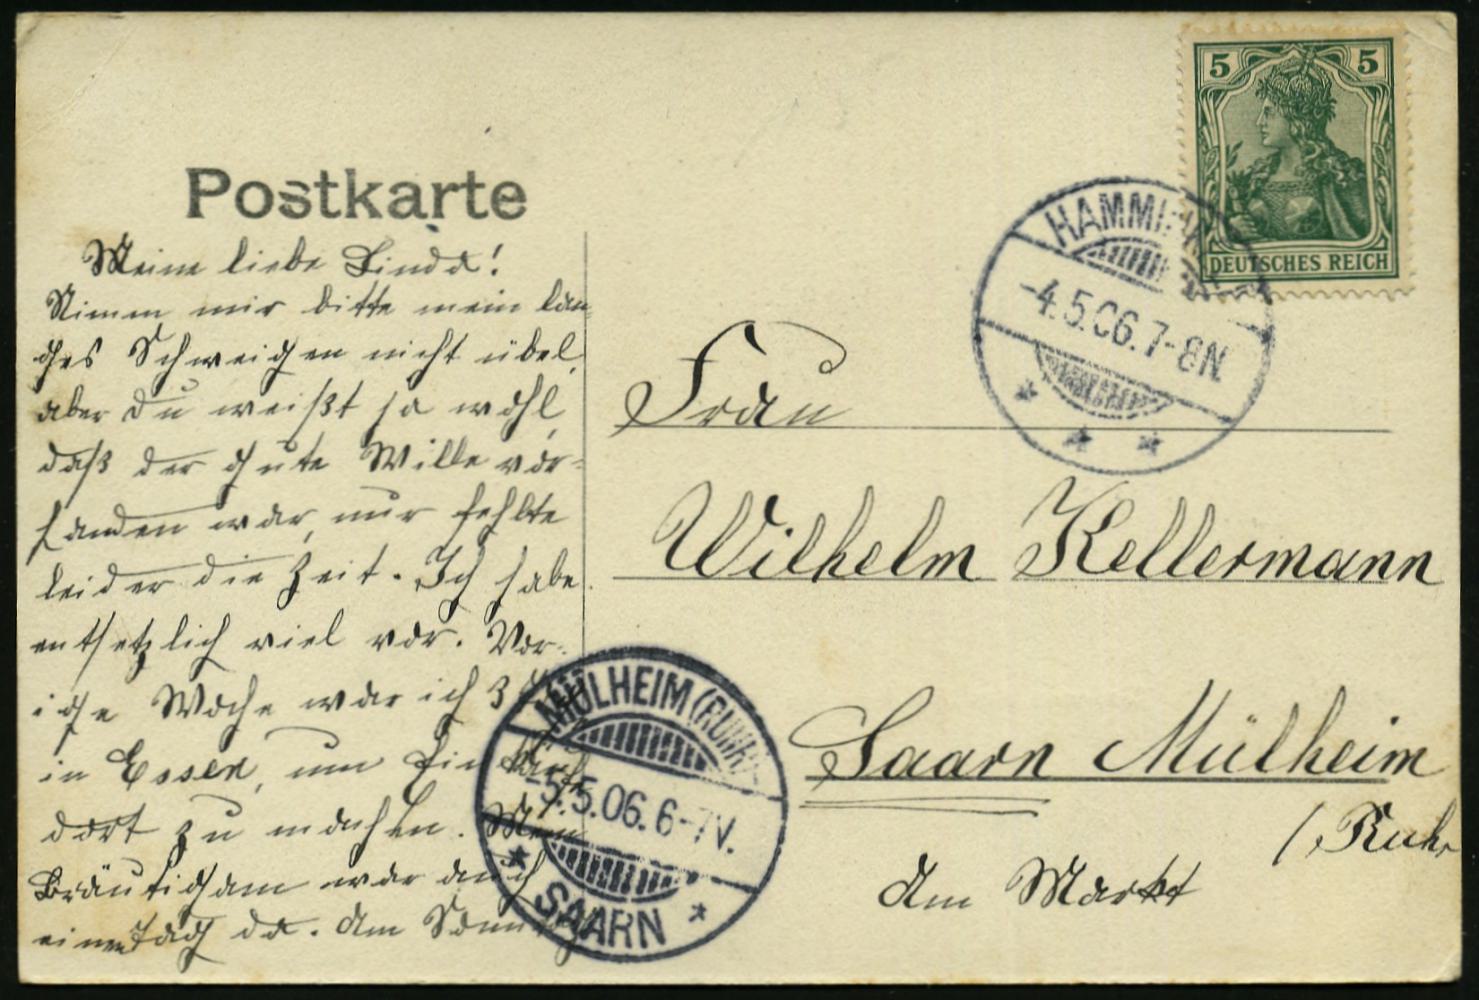 5 5
DEUTSCHES REICH
Postkarte
Meine liebe Linda!
Nimm mir bitte mein lan-
ges Schweigen nicht übel,
aber du weißt ja wohl,
daß der gute Wille vor-
handen war, nur fehlte
leider die Zeit. Ich habe
entsetzlich viel vor. Vor-
ige Woche war ich 3
in Essen, um Einkäufe
dort zu machen. Mein
Bräutigam war auch
einen Tag da. Am Sonntag
-4.5.06.7-8N.
Frau
Wilhelm Kellermann
Saarn Mülheim
/Ruhr
Am Markt
MÜLHEIM (RUHR)
-5.5.06.6-7V.
SAARN